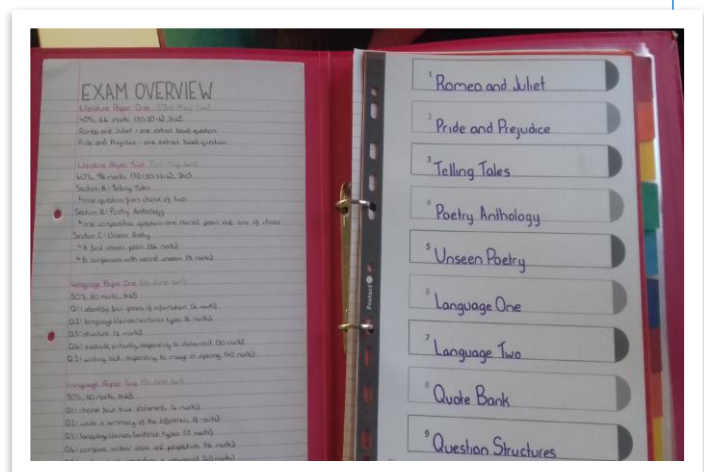 EXAM OVERVIEW
Literature Paper One
40%, 64 marks (30+30+4), 1h45
Romeo and Juliet : one extract based question
Pride and Prejudice : one extract based question
Literature Paper Two
60%, 96 marks 2h15
Section A: Telling Tales
one question from choice of two
Section B: Poetry Anthology
one comparative question: one named poem and one of choice
Section C: Unseen Poetry
A: first unseen poem (24 marks)
B: comparison with second unseen (8 marks)
Language Paper One
50%, 80 marks, 1h45
Q1: identify four pieces of information (4 marks)
Q2: language/devices/sentence types (8 marks)
Q3: structure (8 marks)
Q4: evaluate critically, responding to statement (20 marks)
Q5: writing task, responding to image or opening (40 marks)
Language Paper Two
50%, 80 marks, 1h45
Q1: choose four true statements (4 marks)
Q2: write a summary of the differences (8 marks)
Q3: language/devices/sentence types (12 marks)
Q4: compare writers' ideas and perspectives (16 marks)
(40 marks)
1 Romeo and Juliet
2 Pride and Prejudice
3 Telling Tales
4 Poetry Anthology
5 Unseen Poetry
6 Language One
7 Language Two
8 Quote Bank
9 Question Structures